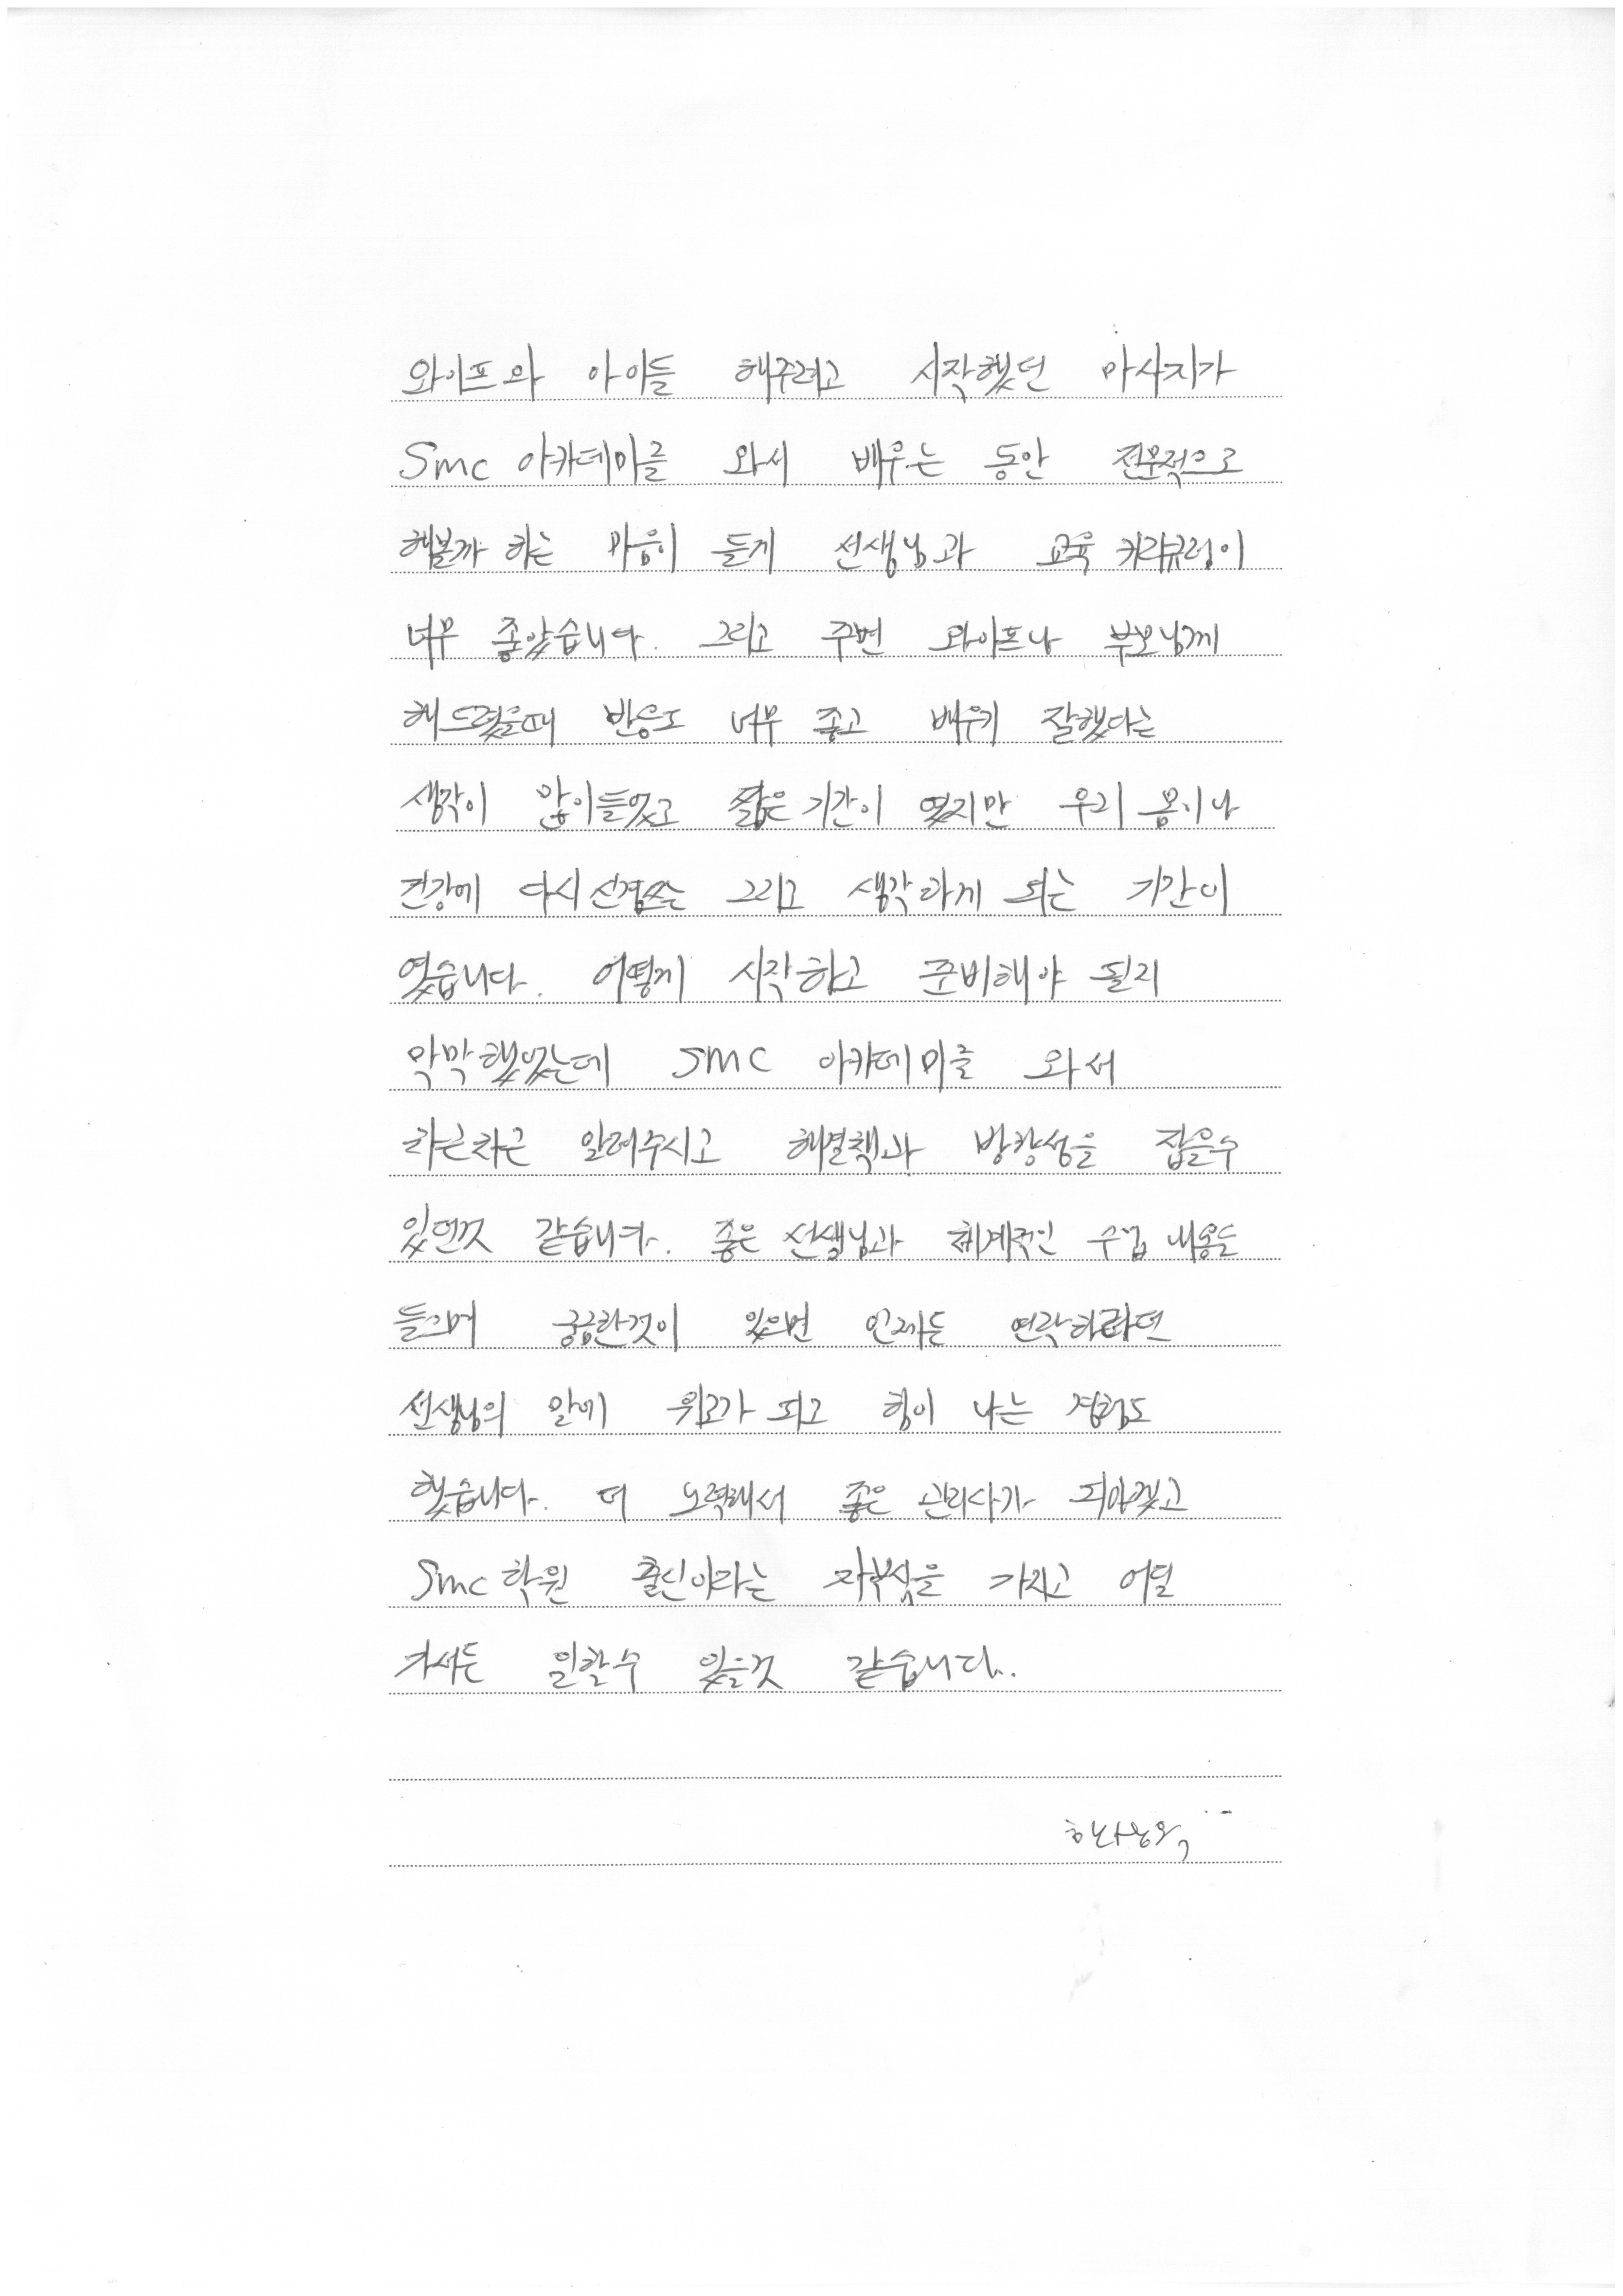 와이프와 아이들 해주려고 시작했던 마사지가
Smc 아카데미를 와서 배우는 동안 전문적으로
해볼까 하는 마음이 들게 선생님과 교육 커리큐럼이
너무 좋았습니다. 그리고 주변 와이프나 부모님께
해드렸을때 반응도 너무 좋고 배우기 잘했다는
생각이 많이들었고 짧은 기간이 였지만 우리 몸이나
건강에 다시 신경쓰는 그리고 생각하게 되는 기간이
였습니다. 어떻게 시작하고 준비해야 될지
막막했었는데 SMC 아카데미를 와서
차근차근 알려주시고 해결책과 방향성을 잡을수
있던것 같습니다. 좋은 선생님과 체계적인 수업 내용들
들으며 궁금한것이 있으면 언제든 연락하라던
선생님의 말에 위로가 되고 힘이 나는 경험도
했습니다. 더 노력해서 좋은 관리사가 되야겠고
Smc 학원 출신이라는 자부심을 가지고 어딜
가서든 일할수 있을것 같습니다..